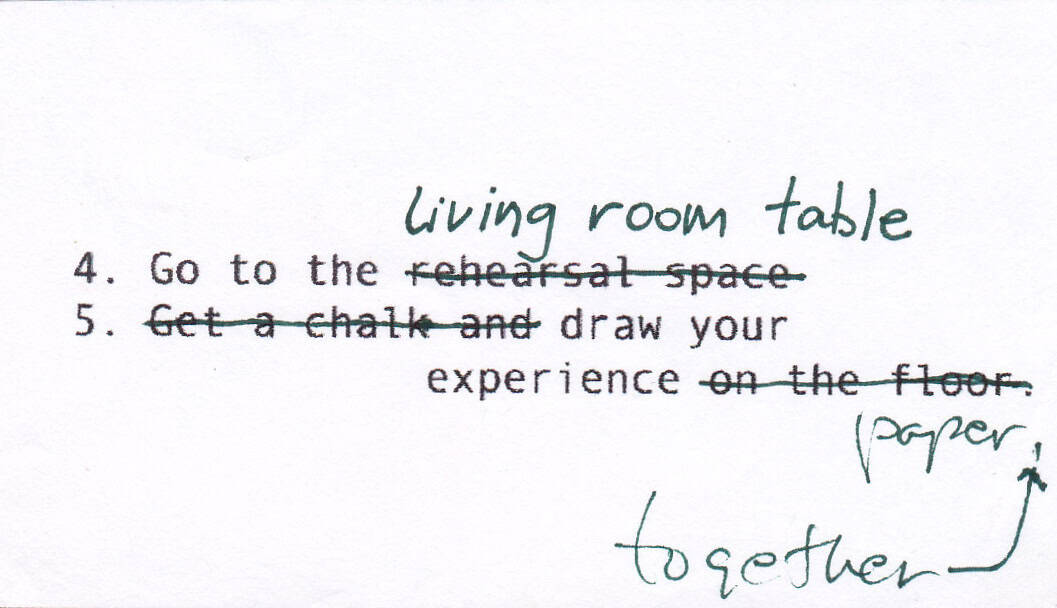 living room table
4. Go to the rehearsal space
5. Get a chalk and draw your
experience on the floor.
paper.
together